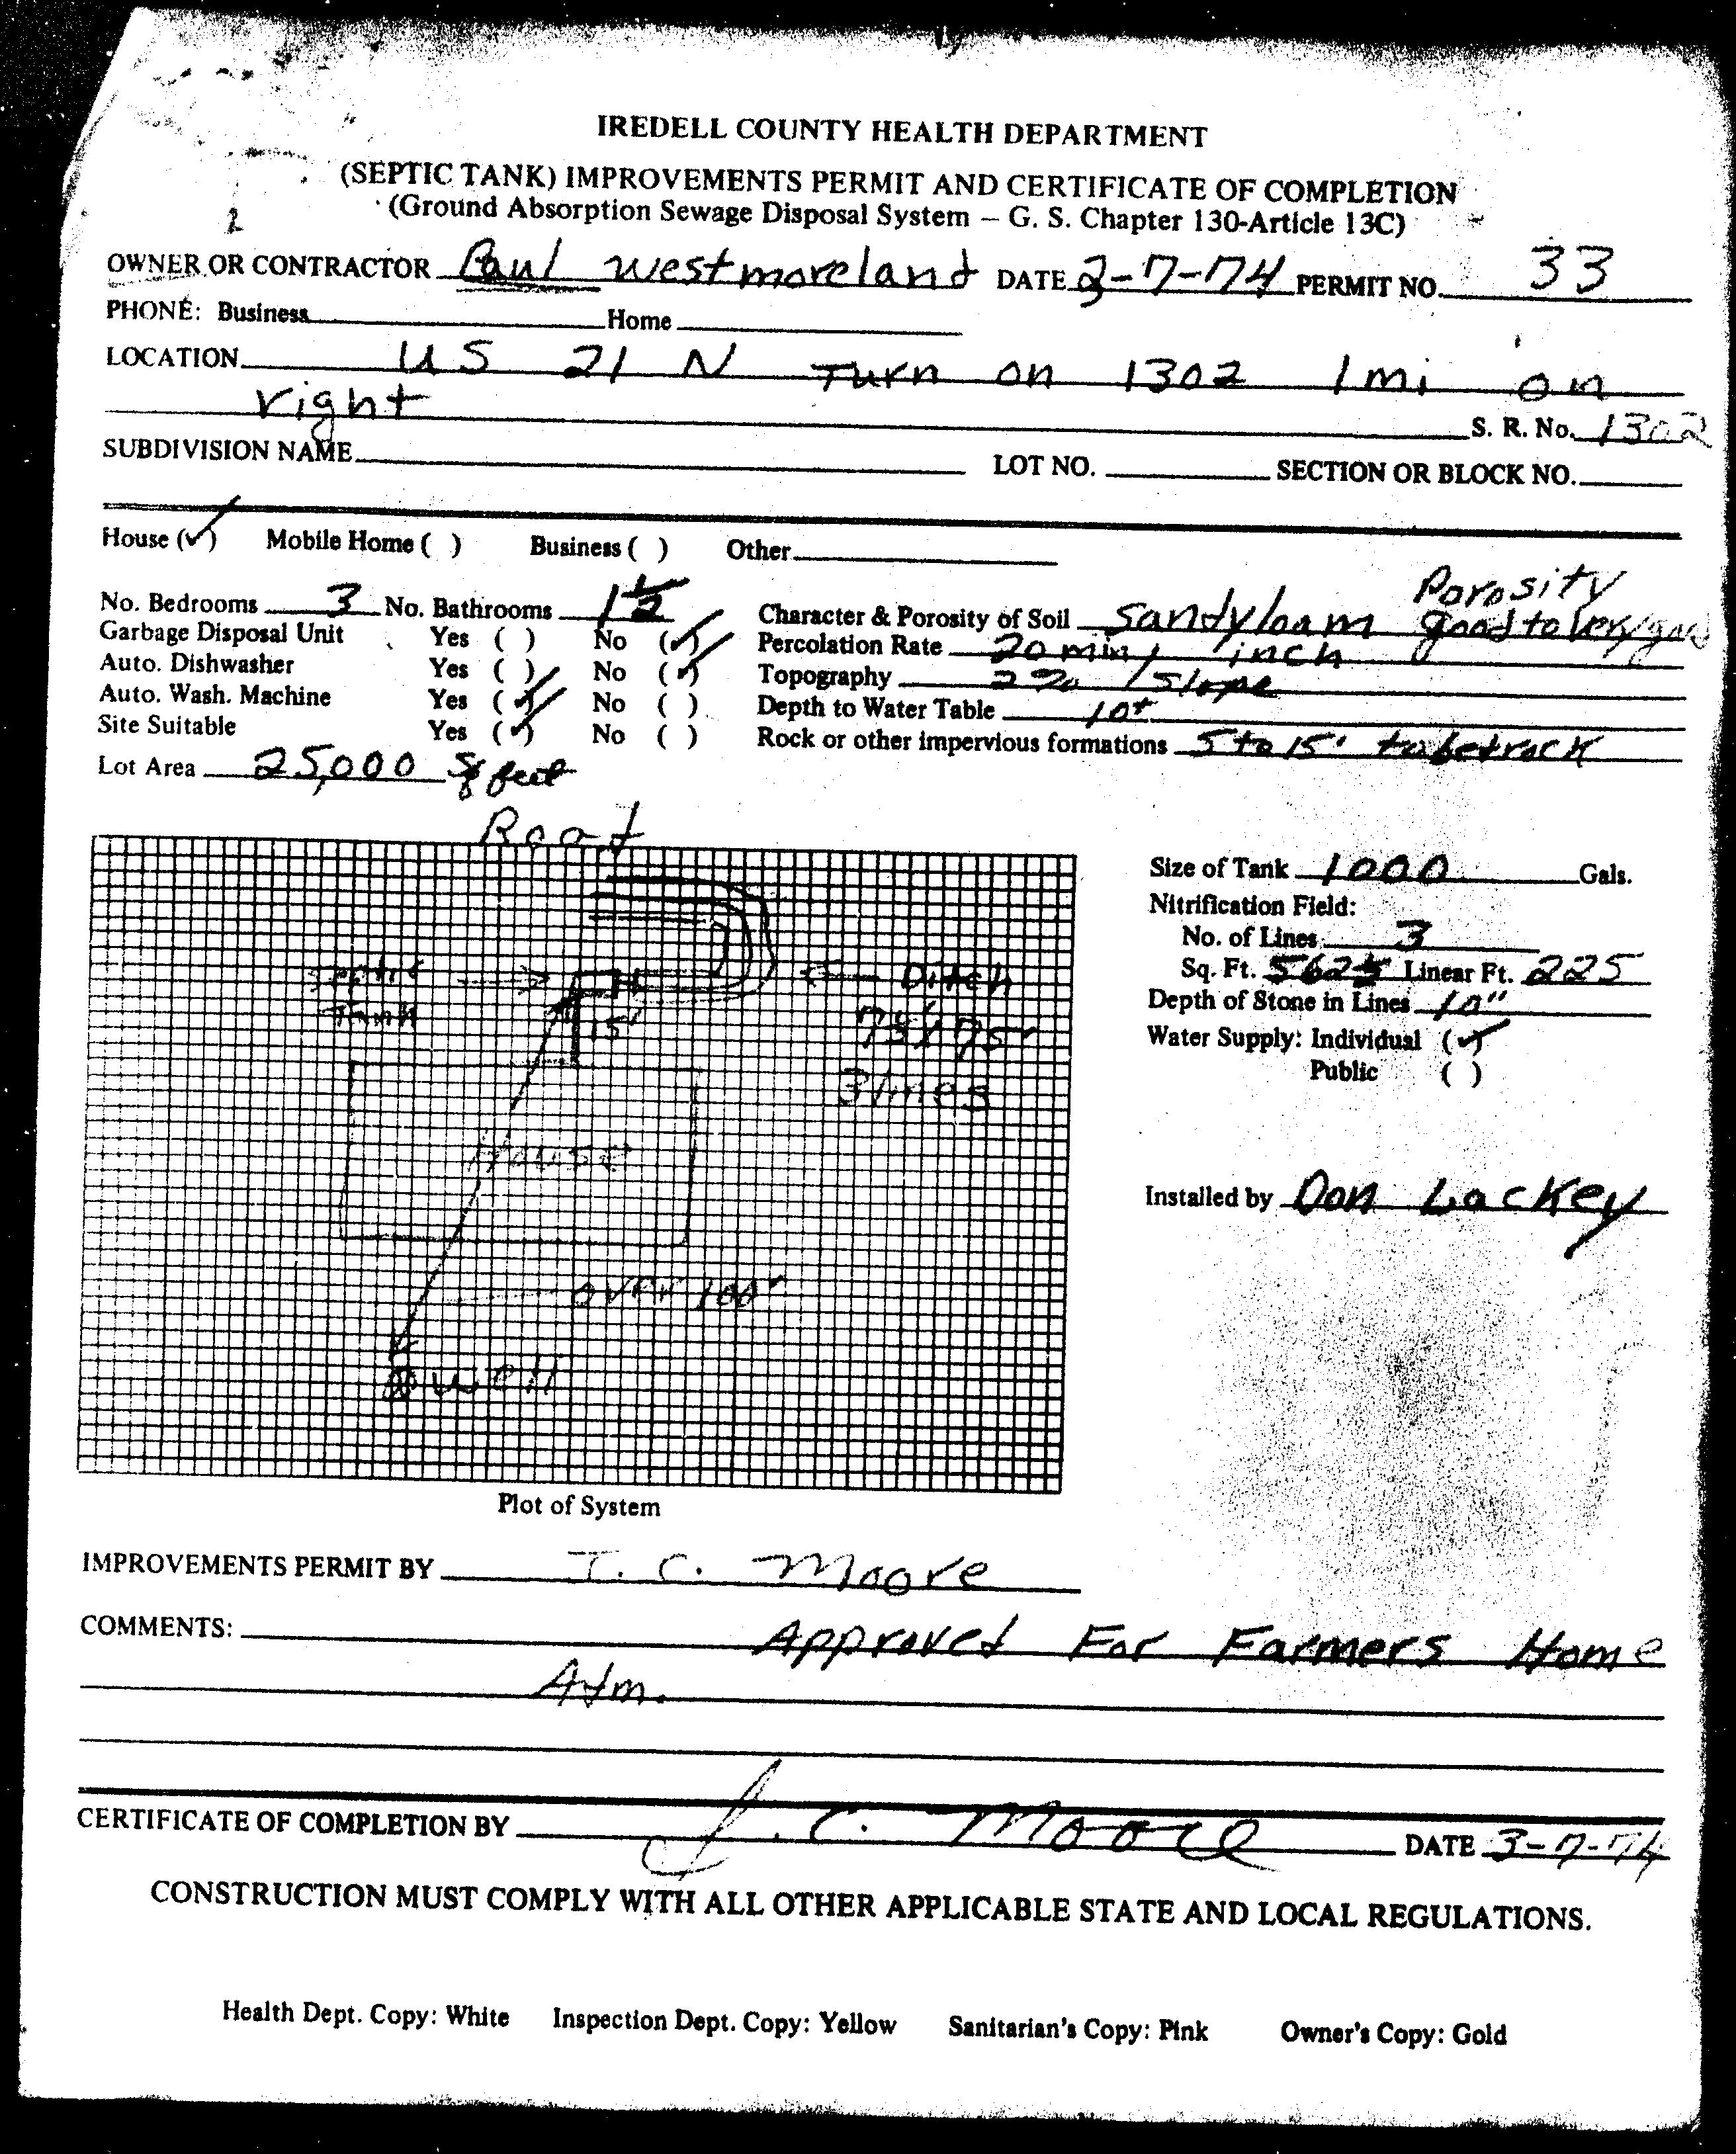 IREDELL COUNTY HEALTH DEPARTMENT
(SEPTIC TANK) IMPROVEMENTS PERMIT AND CERTIFICATE OF COMPLETION
(Ground Absorption Sewage Disposal System – G. S. Chapter 130-Article 13C)
OWNER OR CONTRACTOR Paul Westmoreland DATE -7-74 PERMIT NO. 33
PHONE: Business Home
LOCATION US 21 N Turn on 1302 1 mi on
right
S. R. No. 1302
SUBDIVISION NAME LOT NO. SECTION OR BLOCK NO.
House (✓) Mobile Home ( ) Business ( ) Other
Porosity
No. Bedrooms 3 No. Bathrooms 1½ Character & Porosity of Soil sandy loam good to very good
Garbage Disposal Unit Yes ( ) No (✓) Percolation Rate 20 min / inch
Auto. Dishwasher Yes ( ) No (✓) Topography 2% / slope
Auto. Wash. Machine Yes (✓) No ( ) Depth to Water Table 10+
Site Suitable Yes (✓) No ( ) Rock or other impervious formations 5 to 15' to bedrock
Lot Area 25,000 Sq feet
Road
Size of Tank 1000 Gals.
Nitrification Field:
No. of Lines 3
Sq. Ft. Linear Ft. 225
Depth of Stone in Lines 10"
Water Supply: Individual (✓)
Public ( )
Septic Ditch
Tank 15' 75'
3 lines
House
over 100'
Well
Installed by Don Lackey
Plot of System
IMPROVEMENTS PERMIT BY J. C. Moore
COMMENTS: Approved For Farmers Home
Adm.
CERTIFICATE OF COMPLETION BY J. C. Moore DATE 3-7-74
CONSTRUCTION MUST COMPLY WITH ALL OTHER APPLICABLE STATE AND LOCAL REGULATIONS.
Health Dept. Copy: White Inspection Dept. Copy: Yellow Sanitarian's Copy: Pink Owner's Copy: Gold